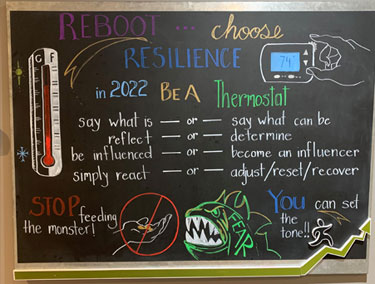 REBOOT ... choose
RESILIENCE
in 2022 BE A Thermostat
G F
74°
say what is — or — say what can be
reflect — or — determine
be influenced — or — become an influencer
simply react — or — adjust/reset/recover
STOP feeding
the monster!
FEAR
YOU can set
the
tone!!